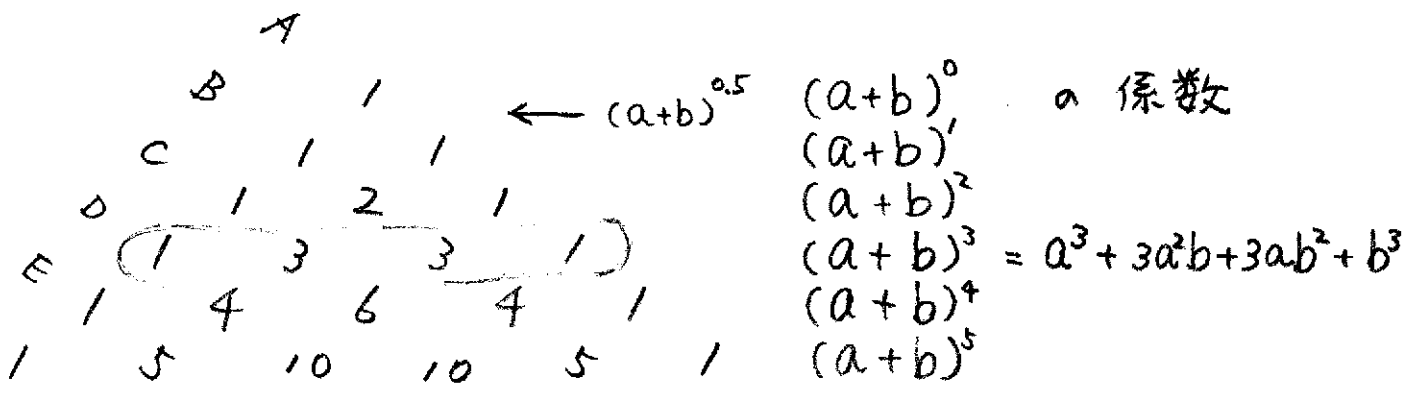 A
B 1 ← (a+b)^0.5 (a+b)^0 a 係数
C 1 1 (a+b)^1
D 1 2 1 (a+b)^2
E 1 3 3 1 (a+b)^3 = a^3+3a^2b+3ab^2+b^3
1 4 6 4 1 (a+b)^4
1 5 10 10 5 1 (a+b)^5